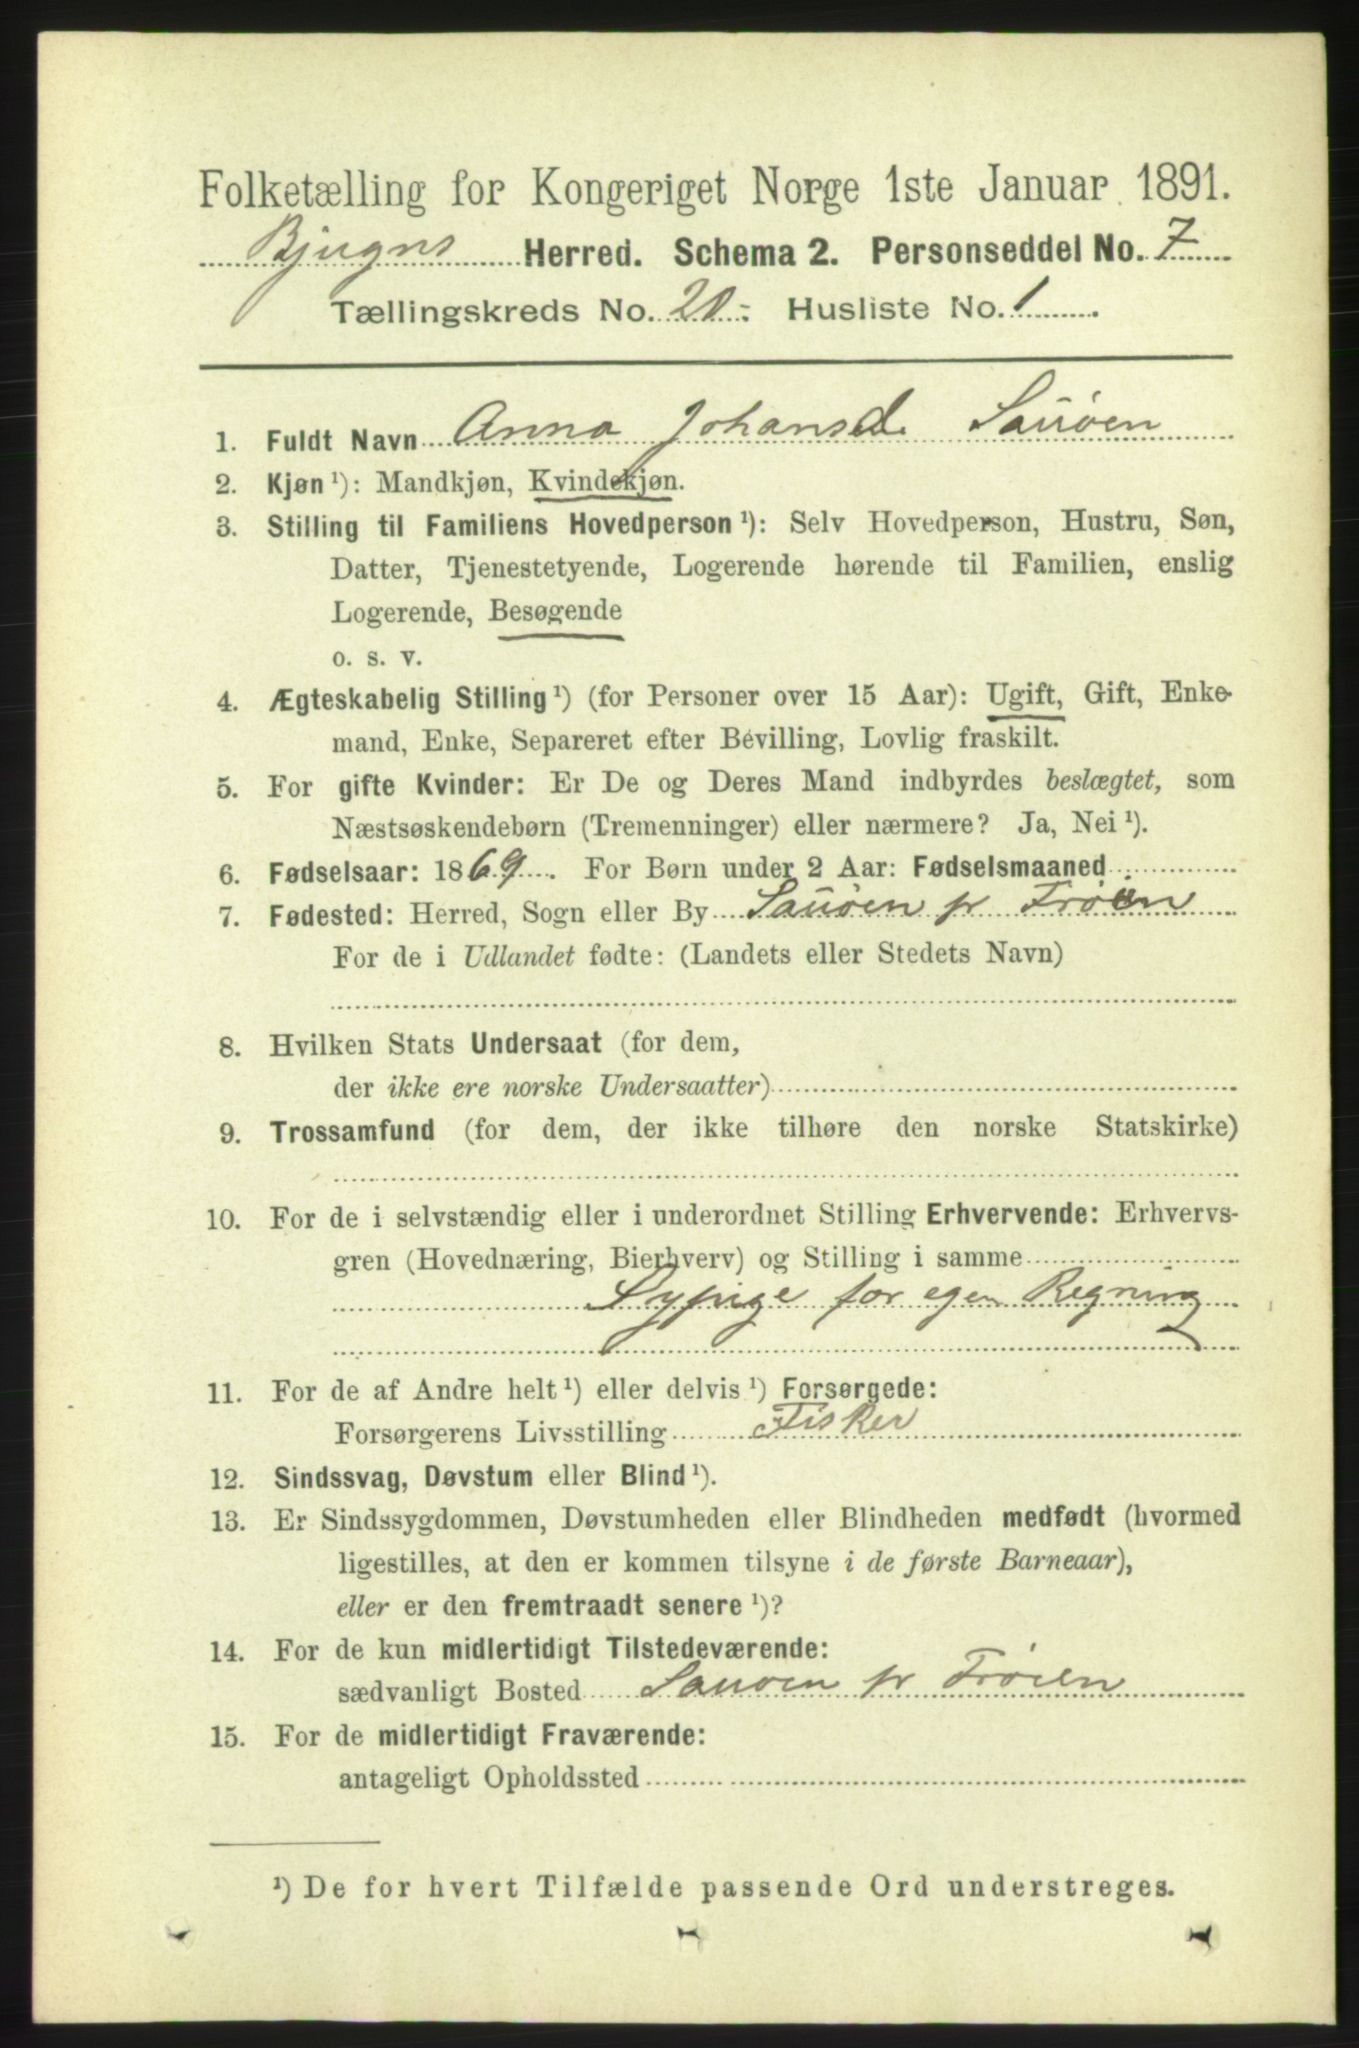 Folketælling for Kongeriget Norge 1ste Januar 1891.
Bjugns Herred. Schema 2. Personseddel No. 7
Tællingskreds No. 20. Husliste No. 1
1. Fuldt Navn Anna Johansd. Sauøen
2. Kjøn ¹): Mandkjøn, Kvindekjøn.
3. Stilling til Familiens Hovedperson ¹): Selv Hovedperson, Hustru, Søn,
Datter, Tjenestetyende, Logerende hørende til Familien, enslig
Logerende, Besøgende
o. s. v.
4. Ægteskabelig Stilling ¹) (for Personer over 15 Aar): Ugift, Gift, Enke-
mand, Enke, Separeret efter Bevilling, Lovlig fraskilt.
5. For gifte Kvinder: Er De og Deres Mand indbyrdes beslægtet, som
Næstsøskendebørn (Tremenninger) eller nærmere? Ja, Nei ¹).
6. Fødselsaar: 1869. For Børn under 2 Aar: Fødselsmaaned
7. Fødested: Herred, Sogn eller By Sauøen pr Frøien
For de i Udlandet fødte: (Landets eller Stedets Navn)
8. Hvilken Stats Undersaat (for dem,
der ikke ere norske Undersaatter)
9. Trossamfund (for dem, der ikke tilhøre den norske Statskirke)
10. For de i selvstændig eller i underordnet Stilling Erhvervende: Erhvervs-
gren (Hovednæring, Bierhverv) og Stilling i samme
Sypige for egen Regning
11. For de af Andre helt ¹) eller delvis ¹) Forsørgede:
Forsørgerens Livsstilling Fisker
12. Sindssvag, Døvstum eller Blind ¹).
13. Er Sindssygdommen, Døvstumheden eller Blindheden medfødt (hvormed
ligestilles, at den er kommen tilsyne i de første Barneaar),
eller er den fremtraadt senere ¹)?
14. For de kun midlertidigt Tilstedeværende:
sædvanligt Bosted Sauoen pr Frøien
15. For de midlertidigt Fraværende:
antageligt Opholdssted
¹) De for hvert Tilfælde passende Ord understreges.